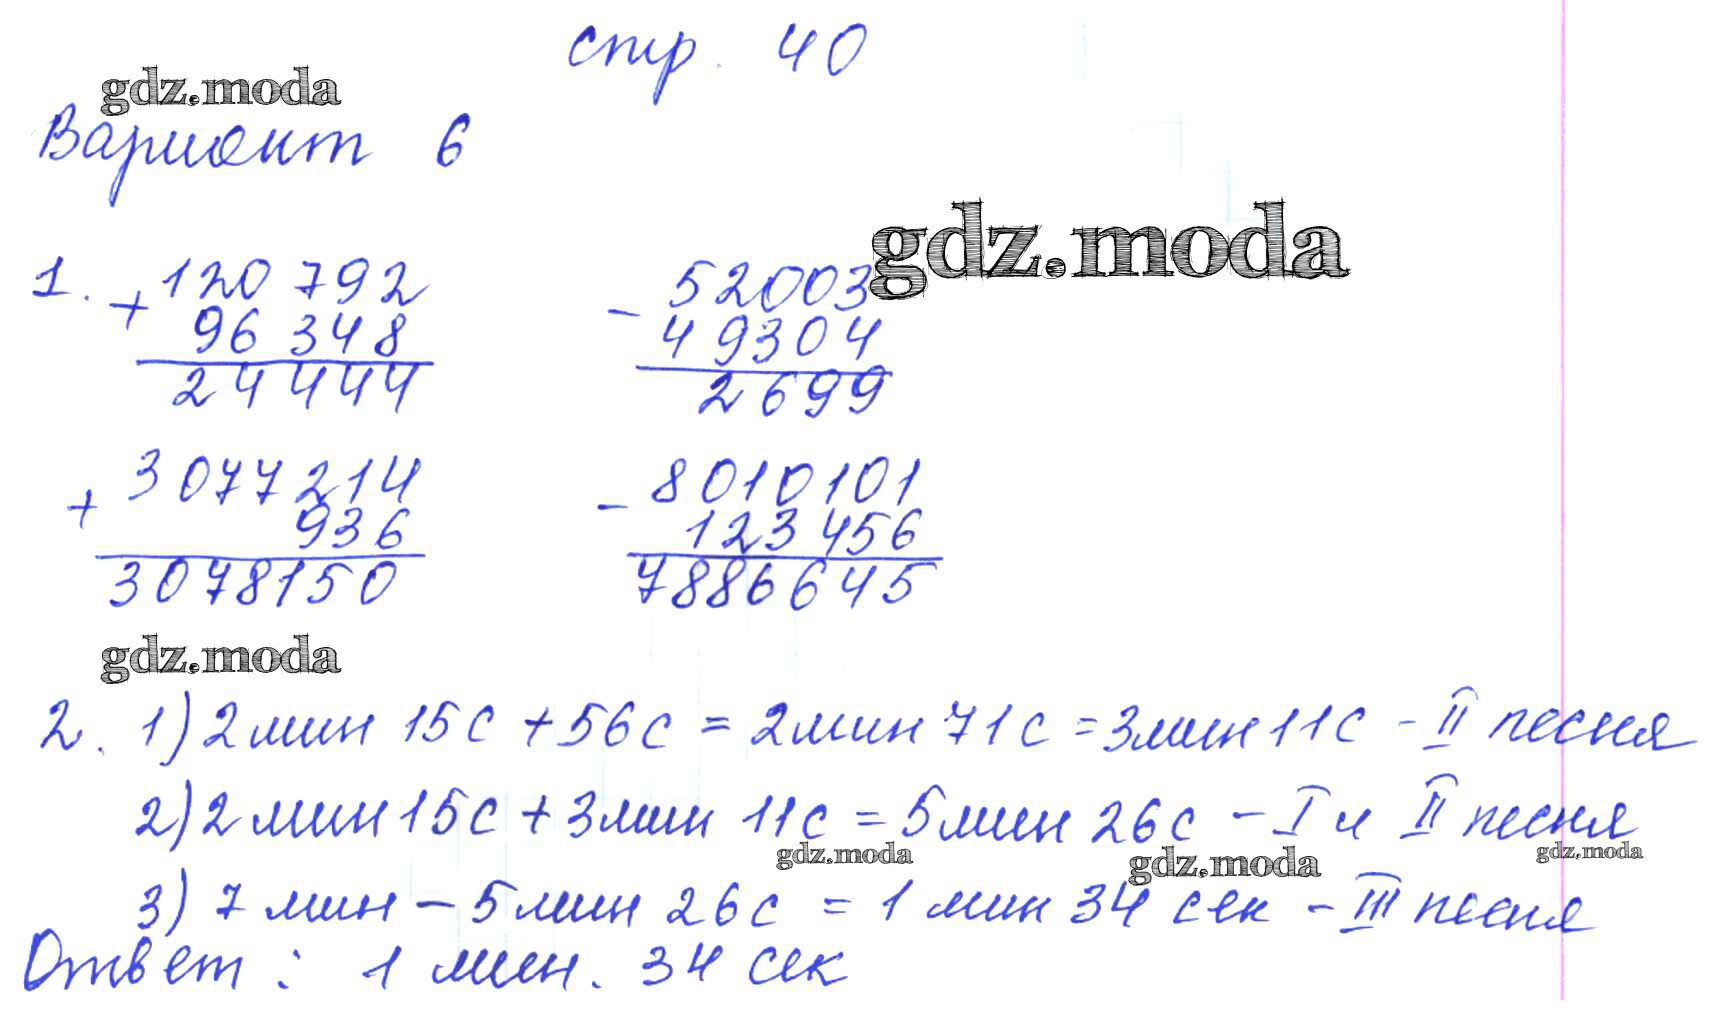 стр. 40
gdz.moda
Вариант 6
gdz.moda
1. + 120 792 - 52003
96 348 49304
24 444 2699
+ 3077214 - 8010101
936 123 456
3078150 7886645
gdz.moda
2. 1) 2 мин 15с + 56с = 2мин 71с = 3мин 11с - II песня
2) 2 мин 15с + 3мин 11с = 5мин 26с - I и II песня
gdz.moda gdz.moda gdz.moda
3) 7 мин - 5мин 26с = 1 мин 34 сек - III песня
Ответ: 1 мин. 34 сек